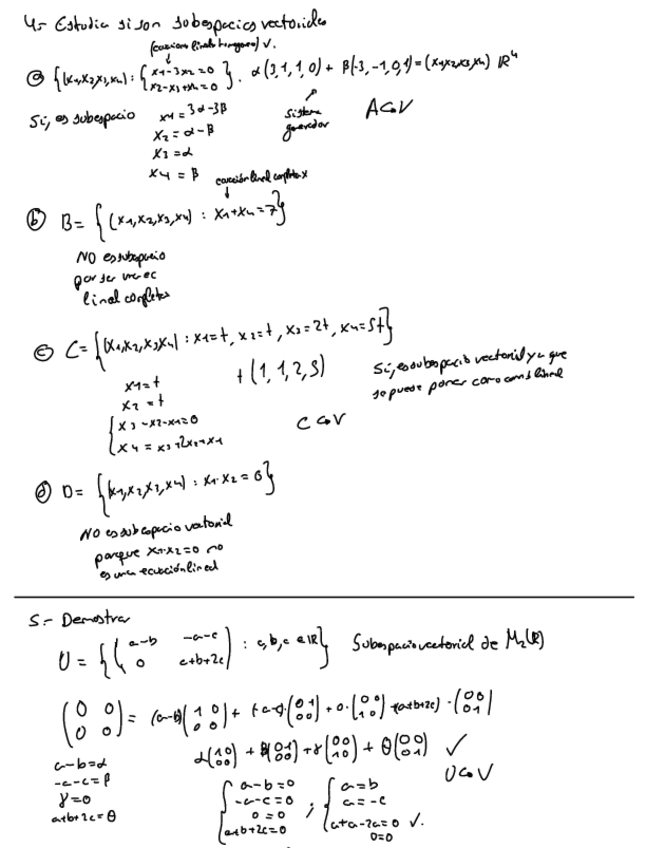 4.- Estudia si son subespacios vectoriales
(ecuaciones lineales homogéneas) ✓.
ⓐ {(x1,x2,x3,x4) : {x1-3x2=0
x2-x3+x4=0}. α(3,1,1,0) + β(-3,-1,0,1) = (x1,x2,x3,x4) ℝ⁴
Sí, es subespacio
x1 = 3α-3β
x2 = α-β
x3 = α
x4 = β
sistema
generador
A ⊂ V
ecuación lineal completa x
ⓑ B = {(x1,x2,x3,x4) : x1+x4=7}
NO es subespacio
por ser una ec
lineal completa
ⓒ C = {(x1,x2,x3,x4) : x1=t, x2=t, x3=2t, x4=5t}
t(1,1,2,5)
Sí, es subespacio vectorial ya que
se puede poner como comb lineal
x1=t
x2=t
{x3-x2-x1=0
x4=x3+2x2+x1
C ⊂ V
ⓓ D = {(x1,x2,x3,x4) : x1·x2=0}
NO es subespacio vectorial
porque x1·x2=0 no
es una ecuación lineal
5.- Demostrar
U = {(a-b -a-c
0 a+b+2c) : a,b,c ∈ ℝ} Subespacio vectorial de M₂(ℝ)
(0 0
0 0) = (a-b)(1 0
0 0) + (-a-c)·(0 1
0 0) + 0·(0 0
1 0) + (a+b+2c)·(0 0
0 1)
a-b=α
-a-c=β
γ=0
a+b+2c=θ
α(1 0
0 0) + β(0 1
0 0) + γ(0 0
1 0) + θ(0 0
0 1) ✓
U ⊂ V
{a-b=0
-a-c=0
0=0
a+b+2c=0
; {a=b
a=-c
a+a-2a=0 ✓.
0=0